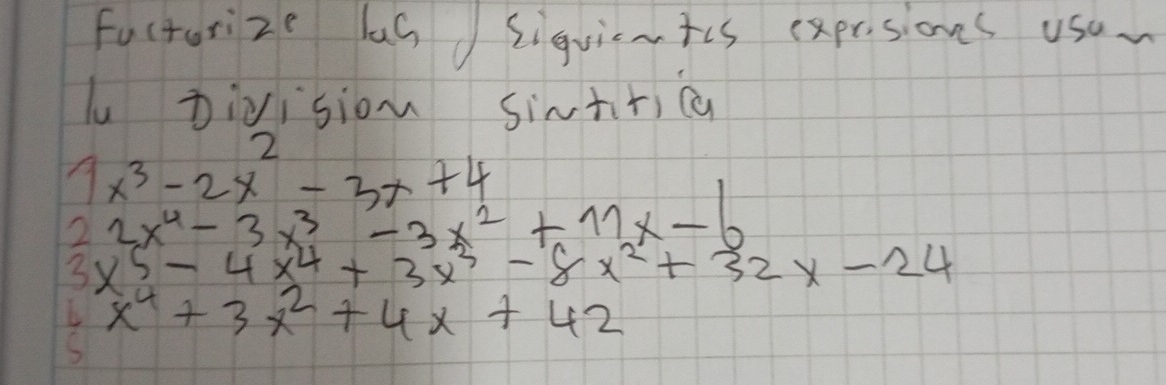 Factorize las siguientes expresiones usan
la División sintética
1 x³ - 2x² - 3x + 4
2 2x⁴ - 3x³ - 3x² + 11x - 6
3 x⁵ - 4x⁴ + 3x³ - 8x² + 32x - 24
4 x⁴ + 3x² + 4x + 42
5